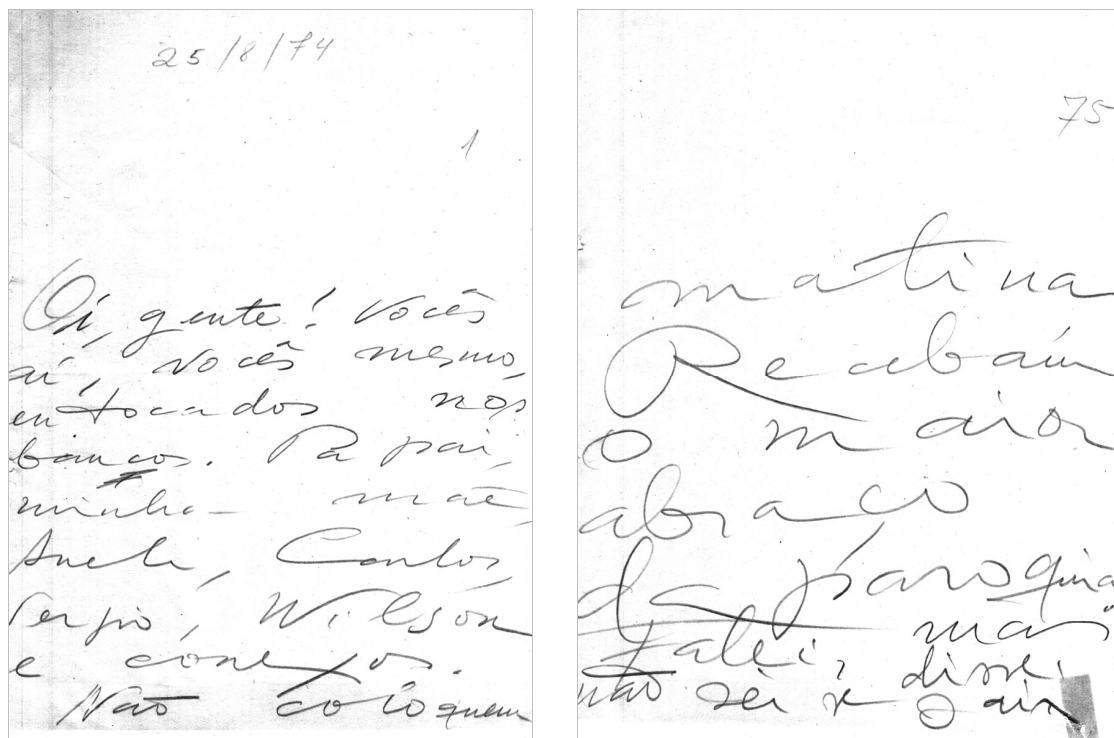 25/8/74
1
Oi, gente! Vocês
aí, vocês mesmo,
entocados nos
bancos. Papai,
minha mãe,
Sueli, Carlos,
Sergio, Wilson
e conexos.
Não coloquem
75
matina
Recebam
o maior
abraço
da paroquia
Falei, mas
não sei se disse.
O Jair